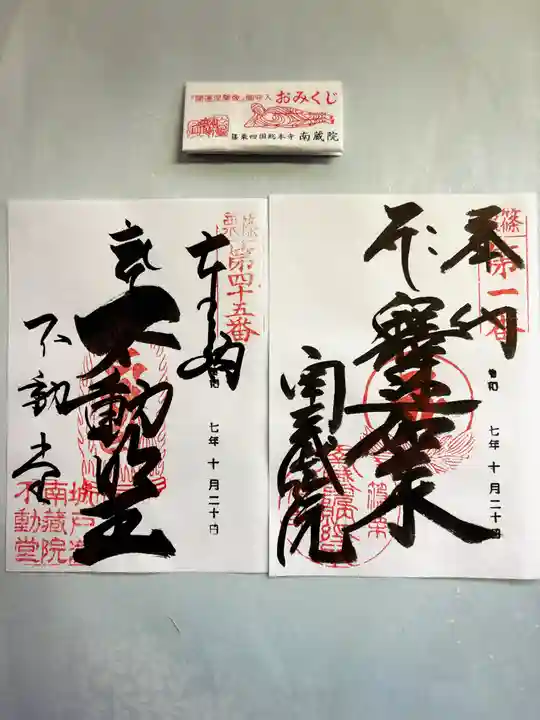 「開運涅槃像」御守入 おみくじ
篠栗四国総本寺 南蔵院
奉納
篠栗
第一番
釋迦如来
令和 七年 十月二十日
南蔵院
奉納
篠栗
第四十五番
不動明王
令和 七年 十月二十日
不動堂
城戸
南藏院
不動堂